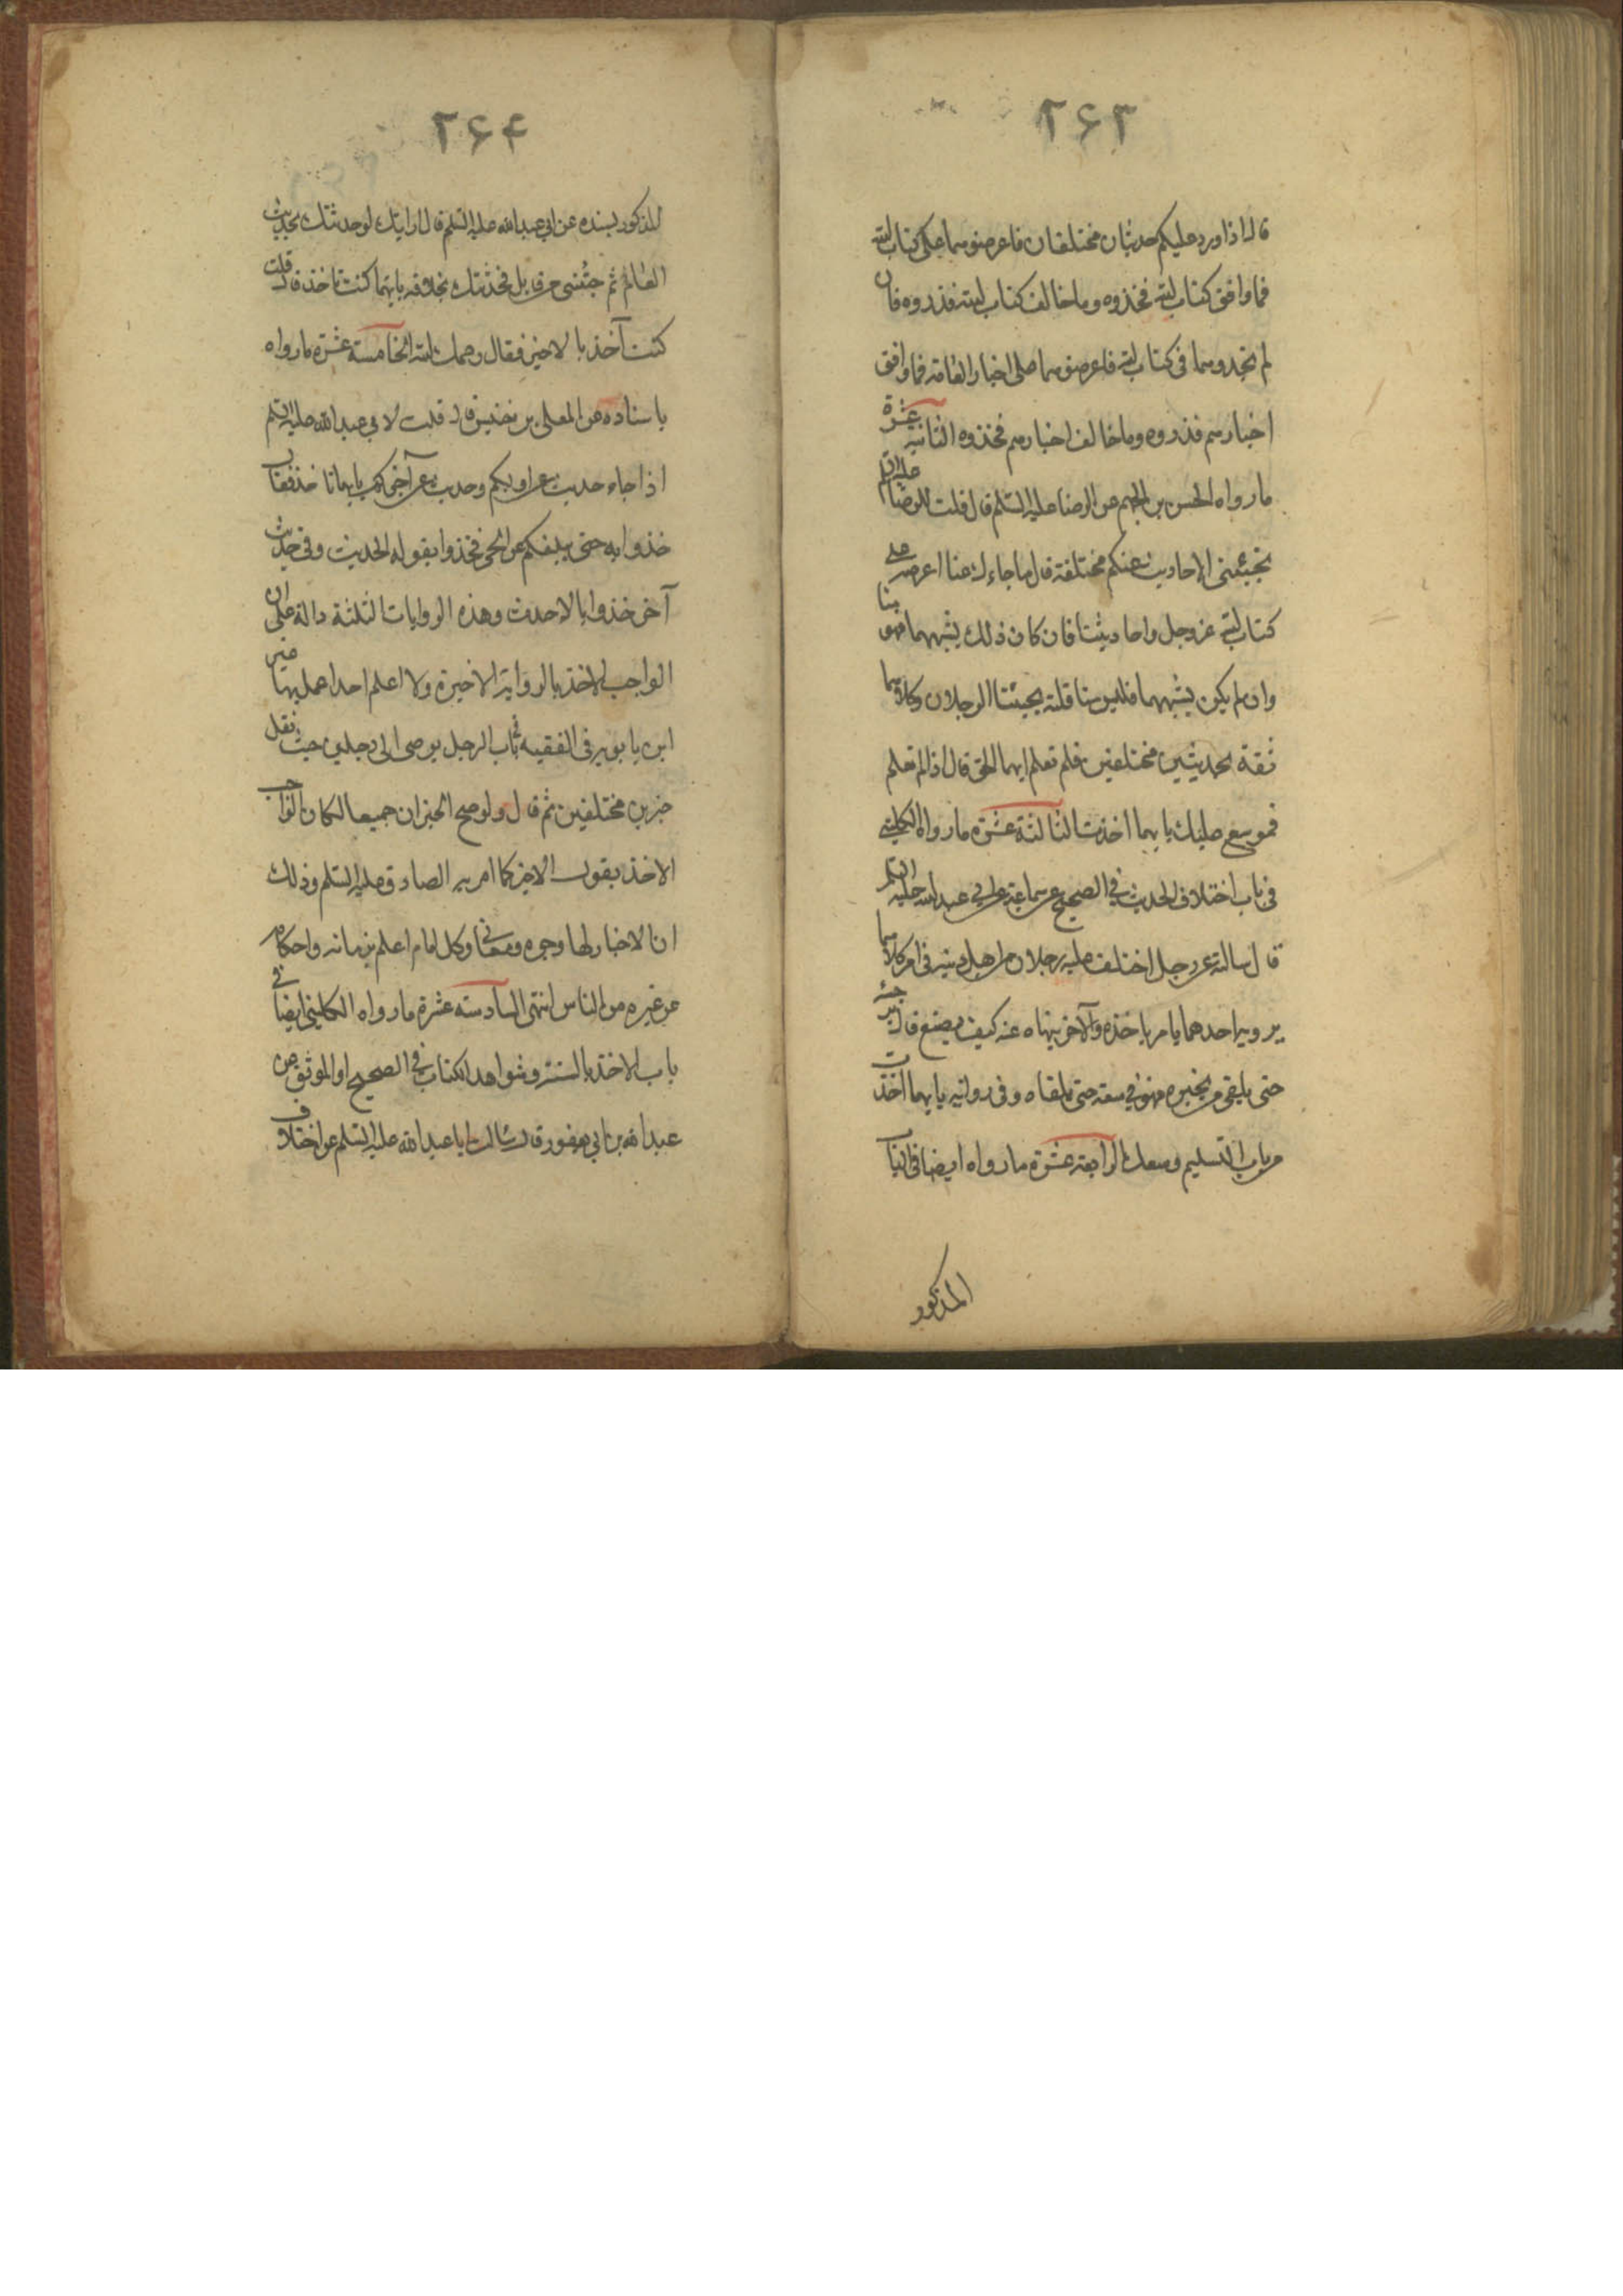 ۲۶۳
قال اذا ورد عليكم حديثان مختلفان فاعرضوهما على كتاب الله
فما وافق كتاب الله فخذوه وما خالف كتاب الله فذروه فان
لم تجدوهما فى كتاب الله فاعرضوهما على اخبار العامة فما وافق
اخبارهم فذروه وما خالف اخبارهم فخذوه الثانية عشرة
ما رواه الحسن بن الجهم عن الرضا عليه السلم قال قلت للرضا عليه السلم
تجيئنى الاحاديث عنكم مختلفة قال ما جاءك عنا اعرضه على
كتاب الله عز وجل واحاديثنا فان كان ذلك يشبههما فهو منا
وان لم يكن يشبههما فليس منا قلت يجيئنا الرجلان وكلاهما
ثقة بحديثين مختلفين فلم نعلم ايهما الحق قال اذا لم تعلم
فموسع عليك بايهما اخذت الثالثة عشرة ما رواه الكلينى
فى باب اختلاف الحديث فى الصحيح عن سماعة عن ابى عبد الله عليه السلم
قال سالته عن رجل اختلف عليه رجلان من اهل دينه فى امر كلاهما
يرويه احدهما يامر باخذه والآخر ينهاه عنه كيف يصنع قال يرجئه
حتى يلقى من يخبره فهو فى سعة حتى يلقاه وفى رواية بايهما اخذت
من باب التسليم وسعك الرابعة عشرة ما رواه ايضا فى الباب
المذكور
۲۶۴
المذكور بسنده عن ابى عبد الله عليه السلم قال ارايتك لوحدثتك بحديث
العام ثم جئتنى من قابل فحدثتك بخلافه بايهما كنت تاخذ قال قلت
كنت آخذ بالاخير فقال رحمك الله الخامسة عشرة ما رواه
باسناده عن المعلى بن خنيس قال قلت لابى عبد الله عليه السلم
اذا جاء حديث عن اولكم وحديث عن آخركم بايهما ناخذ فقال
خذوا به حتى يبلغكم عن الحى فخذوا بقوله الحديث وفى حديث
آخر خذوا بالاحدث وهذه الروايات الثلثة دالة على ان
الواجب الاخذ بالرواية الاخيرة ولا اعلم احدا عمل بها غير
ابن بابويه فى الفقيه فى باب الرجل يوصى الى رجلين حيث نقل
خبرين مختلفين ثم قال ولو صح الخبران جميعا لكان الواجب
الاخذ بقول الاخير كما امر به الصادق عليه السلم وذلك
ان الاخبار لها وجوه ومعانى وكل امام اعلم بزمانه واحكامه
من غيره من الناس انتهى السادسة عشرة ما رواه الكلينى ايضا فى
باب الاخذ بالسنة وشواهد الكتاب فى الصحيح او الموثق عن
عبد الله بن ابى يعفور قال سالت ابا عبد الله عليه السلم عن اختلاف